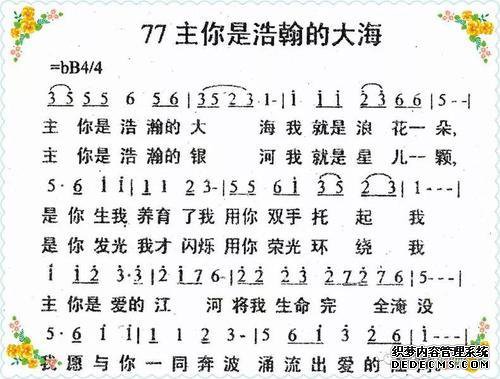 77 主你是浩瀚的大海
=bB4/4
3 5 5 5 6 5 6 | 3 5 2 3 1 - | i i i 2 3 6 6 | 5 - - |
主 你是浩瀚的大 海我就是浪花一朵,
主 你是浩瀚的银 河我就是星儿一颗,
5 · 6 i i | 1 1 2 3 - | 5 · 5 6 i 3 5 2 | 1 - - - |
是你生我养育了我用你双手托 起 我
是你发光我才闪烁用你荣光环 绕 我
i i 2 3 · 3 | 2 · i 7 6 | i 2 2 7 2 7 6 | 5 - - - |
主你是爱的江 河将我生命完 全淹没
5 · 6 i i | 1 1 2 3 - | 5 · 5 6 i 3 2 |
我愿与你一同奔波涌流出爱的
织梦内容管理系统
DEDECMS.COM